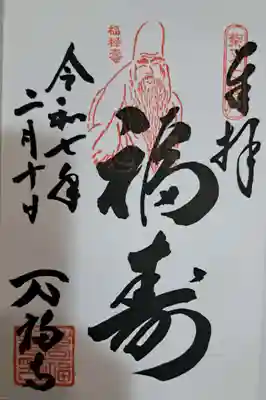 奉拝
福禄寿
福寿
令和七年
二月十日
万福寺